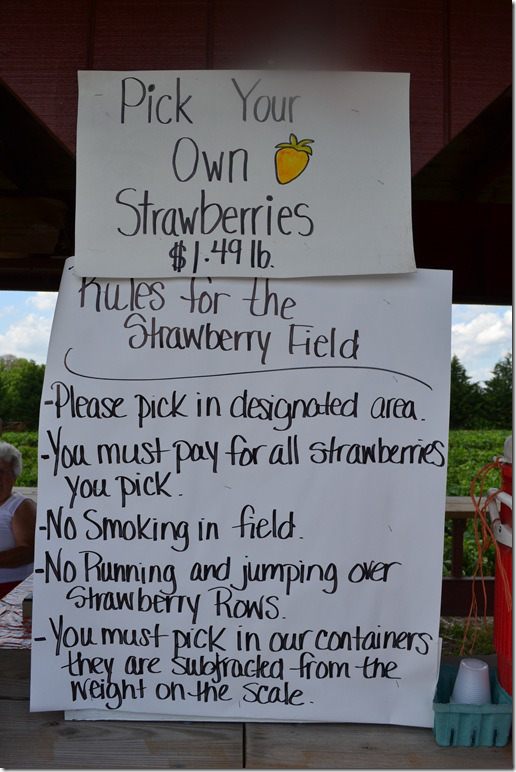 Pick Your
Own
Strawberries
$1.49 lb.
Rules for the
Strawberry Field
-Please pick in designated area.
-You must pay for all strawberries
you pick.
-No Smoking in field.
-No Running and jumping over
Strawberry Rows.
-You must pick in our containers
they are subtracted from the
weight on the scale.